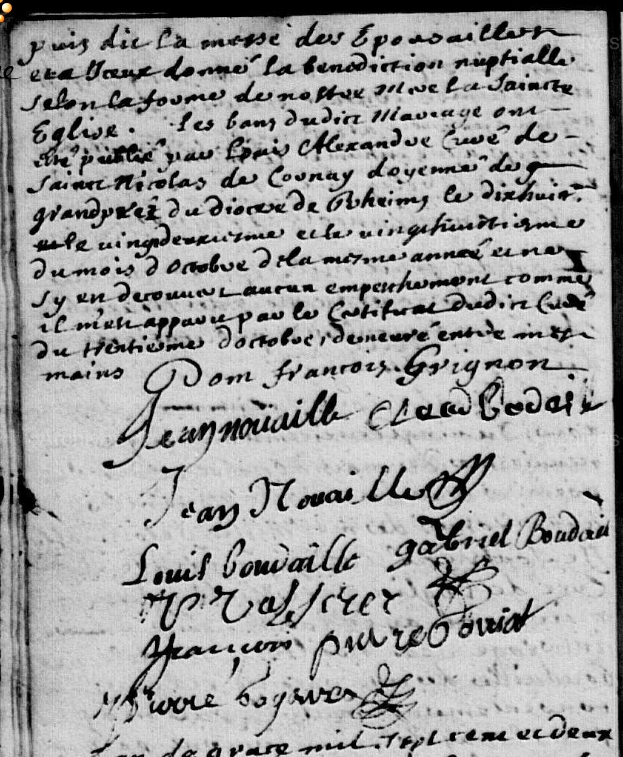 puis dit la messe des Epousailles
et a Iceux donné la benediction nuptialle
selon la forme de nostre mere la Saincte
Eglise. les bans dudict Mariage ont
été publié par Alexandre Curé de
Sainct Nicolas de Cornay doyenné de
grandprez du Diocese de Rheims le dixhuict.
le vingtdeuxieme et le vingthuictieme
du mois d'octobre de la mesme année et ne
sy en decouvert aucun empeschement comme
il m'est apparu par le Certificat dudict Curé
du trentieme d'octobre, demeuré entre mes
mains Dom francois Grignon
Jean nouaille
Jean Nouaille
Louis bouvaille gabriel
francois pierre
Pierre
de grace mil sept cent et deux